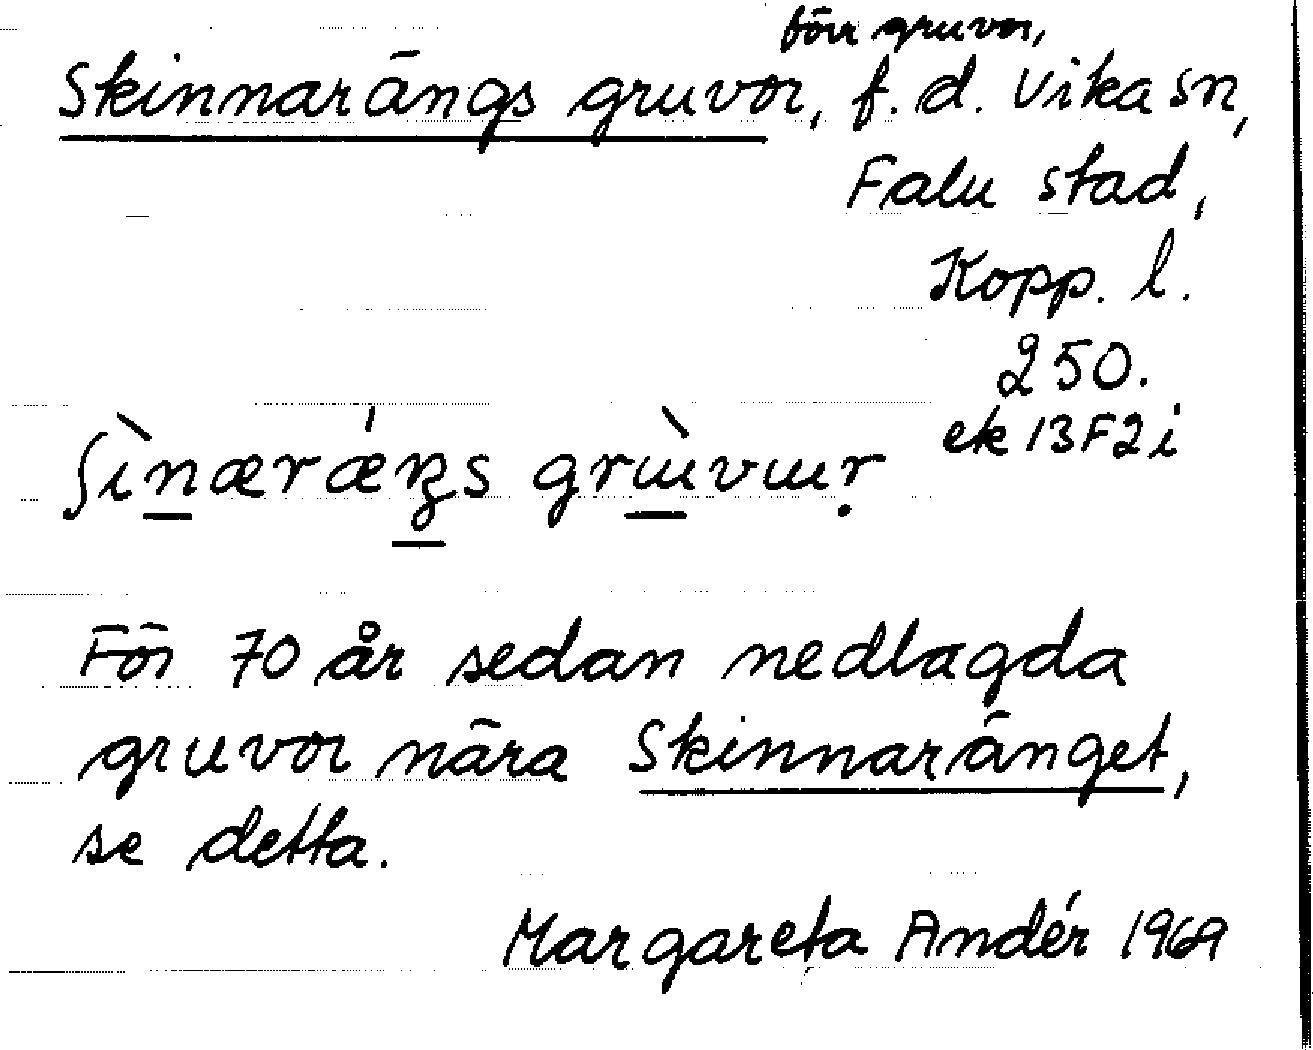 förr gruvor,
Skinnarängs gruvor, f. d. Vika sn,
Falu stad,
Kopp. l.
250.
ek 13F2i
För 70 år sedan nedlagda
gruvor nära Skinnaränget,
se detta.
Margareta Andér 1969